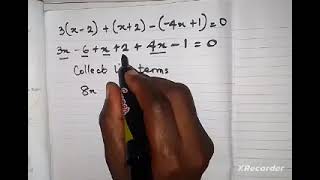 3(x-2) + (x+2) - (-4x+1) = 0
3x - 6 + x + 2 + 4x - 1 = 0
Collect terms
8x
XRecorder